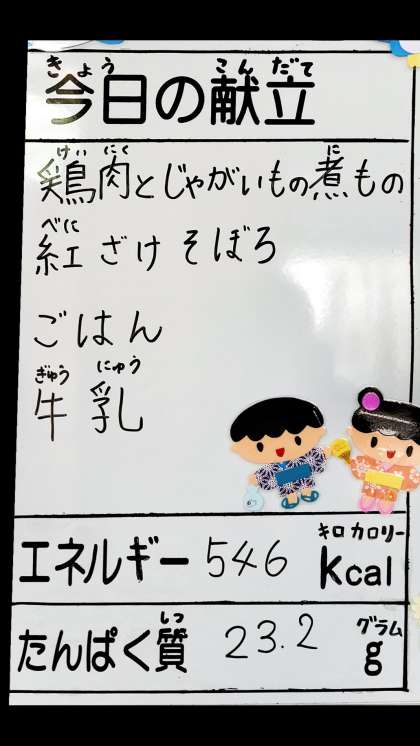 きょう こんだて
今日の献立
けいにく に
鶏肉とじゃがいもの煮もの
べに
紅ざけそぼろ
ごはん
ぎゅう にゅう
牛乳
キロカロリー
エネルギー 546 Kcal
しつ グラム
たんぱく質 23.2 g